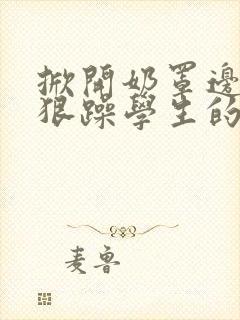 掀開奶罩邊
狠躁學生的
麦鲁